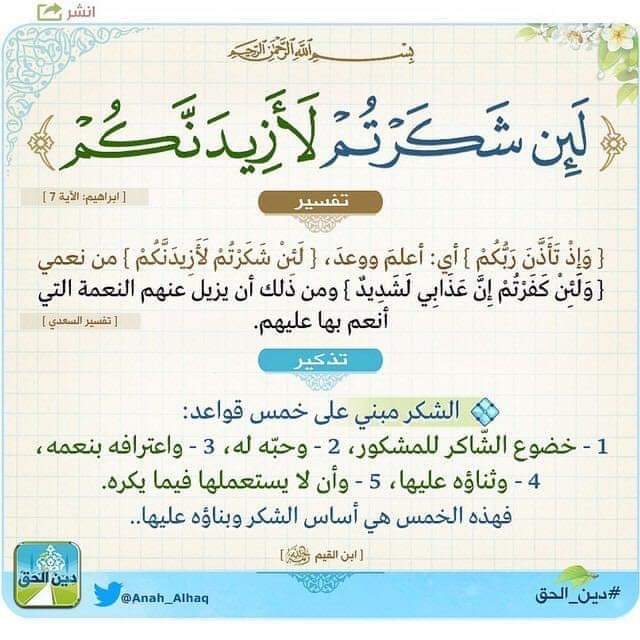 انشر
بِسْمِ اللَّهِ الرَّحْمَنِ الرَّحِيمِ
لَئِن شَكَرْتُمْ لَأَزِيدَنَّكُمْ
[ ابراهيم: الآية 7 ]
تفسير
{ وَإِذْ تَأَذَّنَ رَبُّكُمْ } أي: أعلمَ ووعدَ، { لَئنْ شَكَرْتُمْ لَأَزِيدَنَّكُمْ } من نعمي
{ وَلَئِنْ كَفَرْتُمْ إِنَّ عَذَابِي لَشَدِيدٌ } ومن ذَلك أن يزيل عنهم النعمة التي
أنعم بها عليهم.
[ تفسير السعدي ]
تذكير
الشكر مبني على خمس قواعد:
1 - خضوع الشّاكر للمشكور، 2 - وحبّه له، 3 - واعترافه بنعمه،
4 - وثناؤه عليها، 5 - وأن لا يستعملها فيما يكره.
فهذه الخمس هي أساس الشكر وبناؤه عليها..
[ ابن القيم ]
دين الحق
@Anah_Alhaq
#دين_الحق